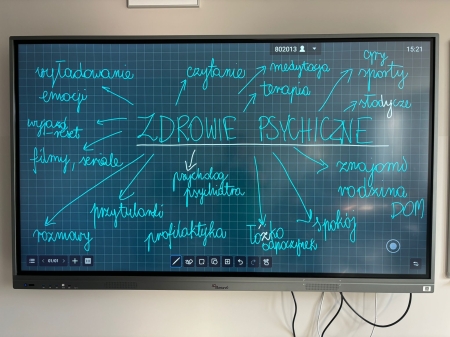 802013
15:21
wyładowanie
emocji
czytanie
medytacja
terapia
gry
sporty
słodycze
wyjazd
reset
ZDROWIE PSYCHICZNE
filmy, seriale
psycholog
psychiatra
znajomi
rodzina
DOM
przytulanki
rozmowy
profilaktyka
Łóżko
odpoczynek
spokój
01/01